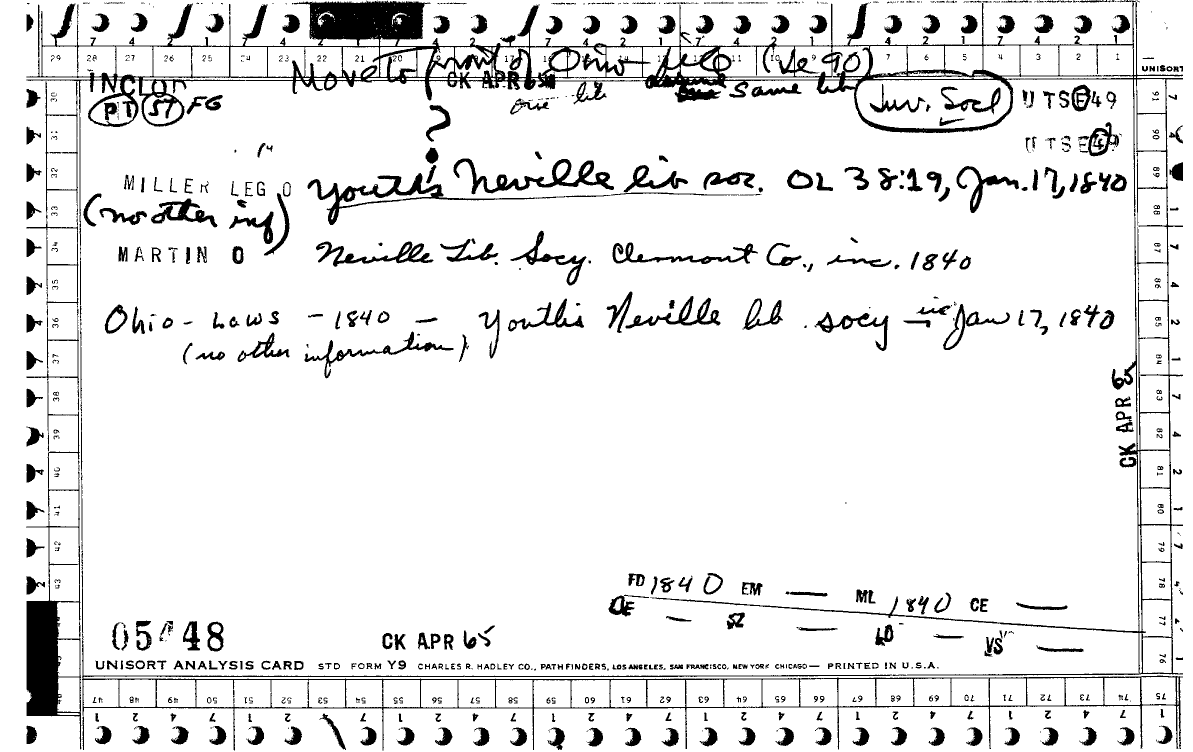 7 4 2 1 7 4 2 1 7 4 2 1 7 4 2 1 7 4 2 1 7 4 2 1
29 28 27 26 25 24 23 22 21 20 19 18 17 16 15 14 13 12 11 10 9 8 7 6 5 4 3 2 1
UNISORT
Move to front of Ohio file (Se 90)
INCLOH CK APR 65 same lib
one lib
PT 57 FG Juv. Socl UTSE49
UTSE49
MILLER LEG O Youth's Neville lib soc. OL 38:19, Jan. 17, 1840
(no other inf)
MARTIN O Neville Lib. Socy. Clermont Co., inc. 1840
Ohio - Laws - 1840 - Youth's Neville lib. socy - inc Jan 17, 1840
(no other information)
CK APR 65
FD 1840 EM — ML 1840 CE —
DE — SZ — LD — VS —
05448 CK APR 65
UNISORT ANALYSIS CARD STD FORM Y9 CHARLES R. HADLEY CO., PATHFINDERS, LOS ANGELES, SAN FRANCISCO, NEW YORK CHICAGO — PRINTED IN U.S.A.
47 48 49 50 51 52 53 54 55 56 57 58 59 60 61 62 63 64 65 66 67 68 69 70 71 72 73 74 75
1 2 4 7 1 2 4 7 1 2 4 7 1 2 4 7 1 2 4 7 1 2 4 7